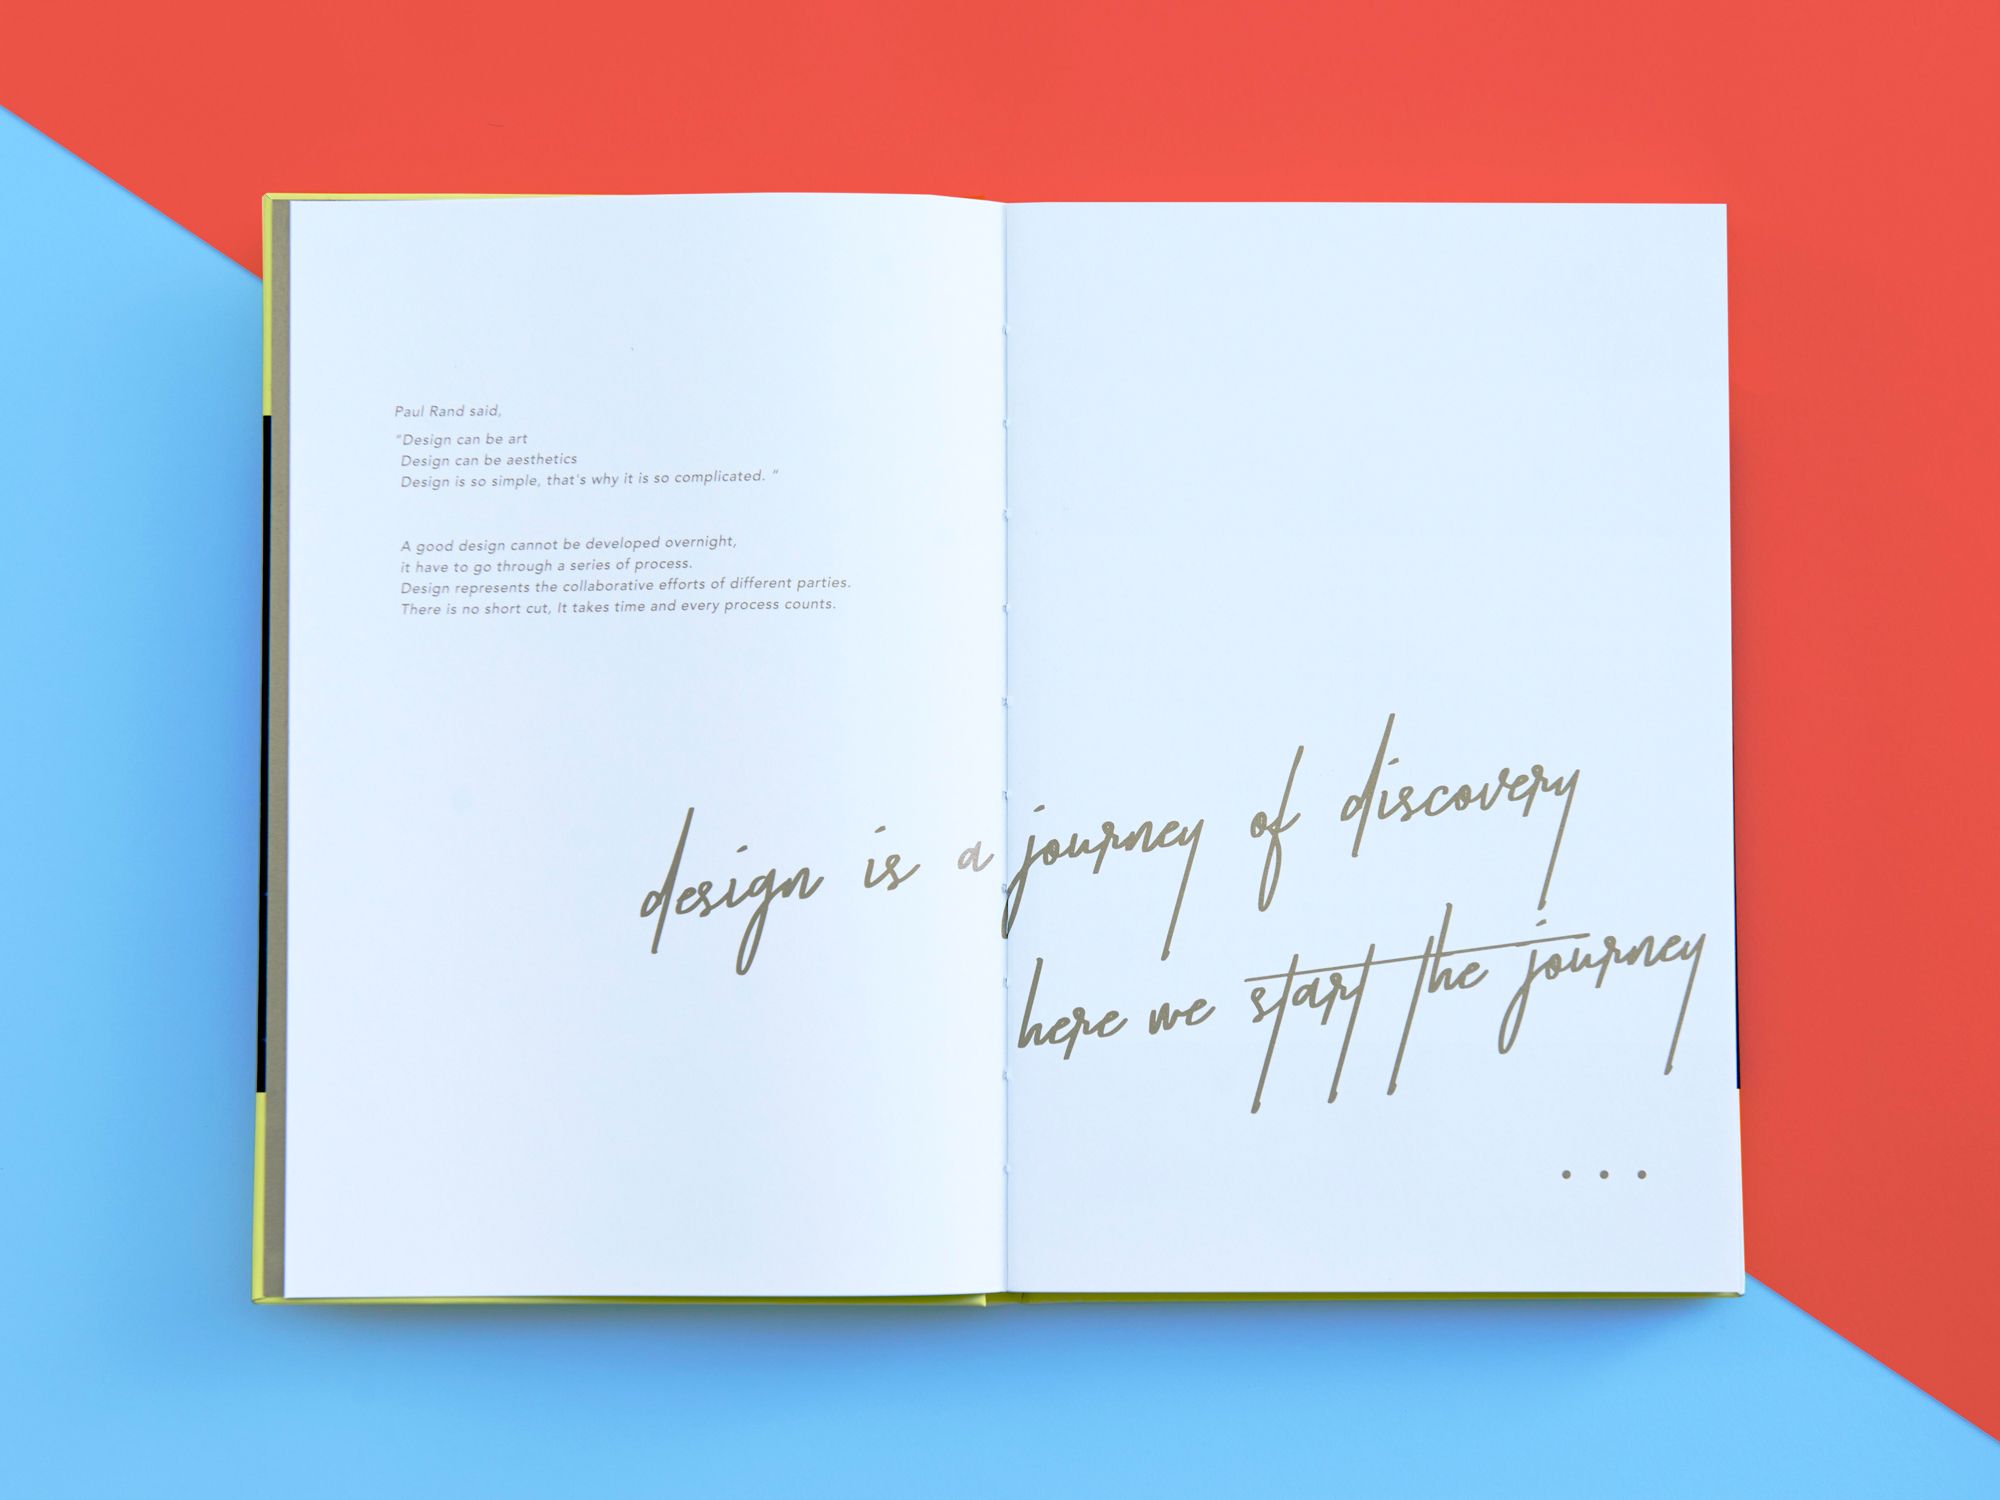 Paul Rand said,
"Design can be art
Design can be aesthetics
Design is so simple, that's why it is so complicated. "
A good design cannot be developed overnight,
it have to go through a series of process.
Design represents the collaborative efforts of different parties.
There is no short cut, It takes time and every process counts.
design is a journey of discovery
here we start the journey
...